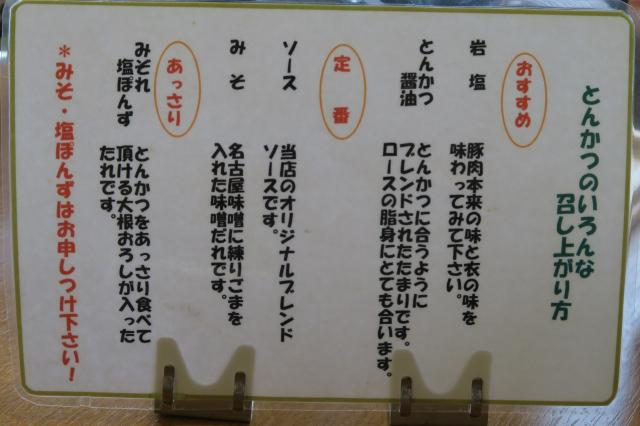 とんかつのいろんな
召し上がり方
おすすめ
岩塩
豚肉本来の味と衣の味を
味わってみて下さい。
とんかつ
醤油
とんかつに合うように
ブレンドされたたまりです。
ロースの脂身にとても合います。
定番
ソース
当店のオリジナルブレンド
ソースです。
みそ
名古屋味噌に練りごまを
入れた味噌だれです。
あっさり
みぞれ
塩ぽんず
とんかつをあっさり食べて
頂ける大根おろしが入った
たれです。
＊みそ・塩ぽんずはお申しつけ下さい！